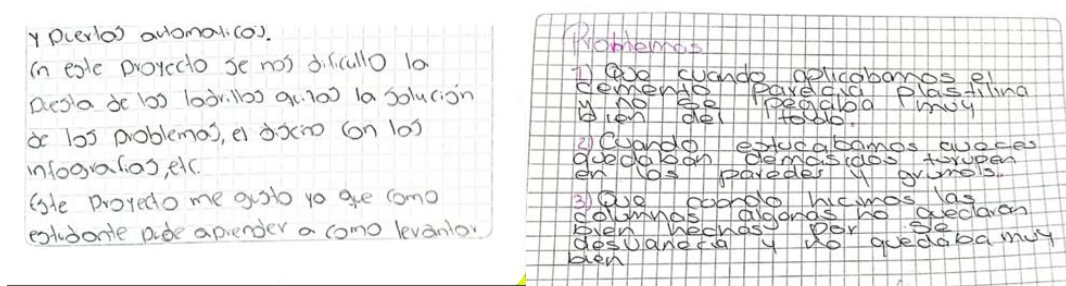 y puertas automaticas.
En este proyecto se nos dificulto la
puesta de los ladrillos quizas la solución
de los problemas, el diseño con las
infografias, etc.
Este proyecto me gusto ya que como
estudiante pude aprender a como levantar
Problemas
1) Que cuando aplicabamos el
cemento parecia plastilina
y no se pegaba muy
bien del todo.
2) Cuando estucabamos aveces
quedaban demasidos
en las paredes y grumols.
3) Que cuando hicimos las
columnas algonas no quedaron
bien hechas por se
desvanecia y no quedaba muy
bien